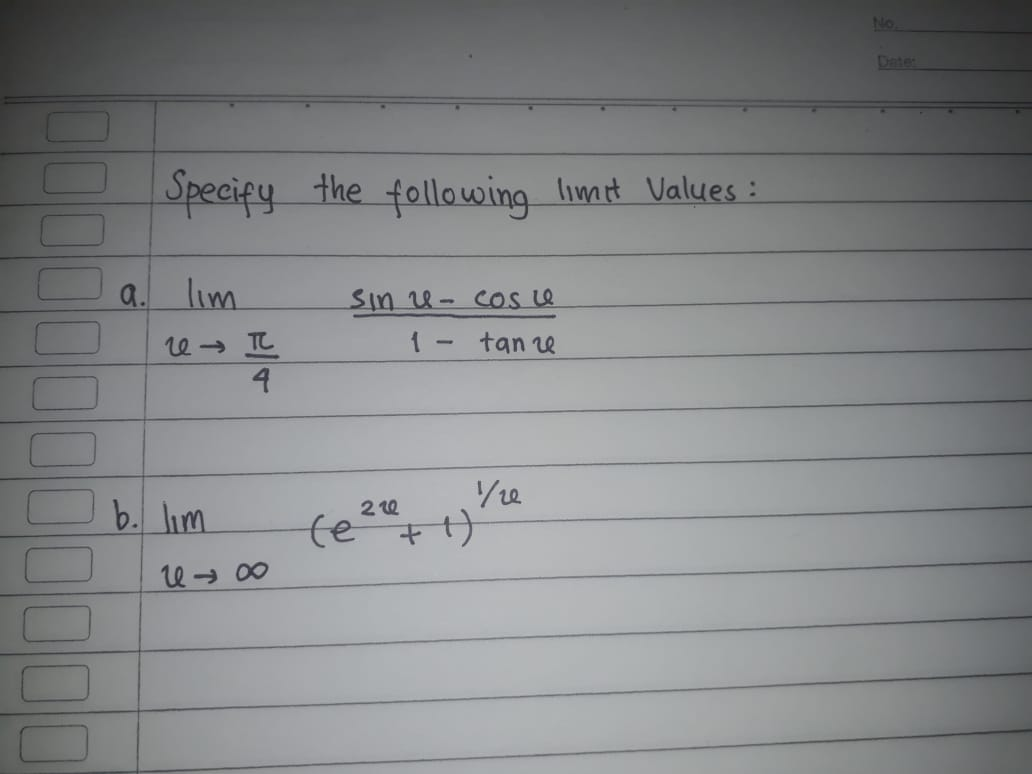 No.
Date:
Specify the following limit values:
a. lim x → π/4 (sin x - cos x)/(1 - tan x)
b. lim x → ∞ (e^2x + 1)^1/x